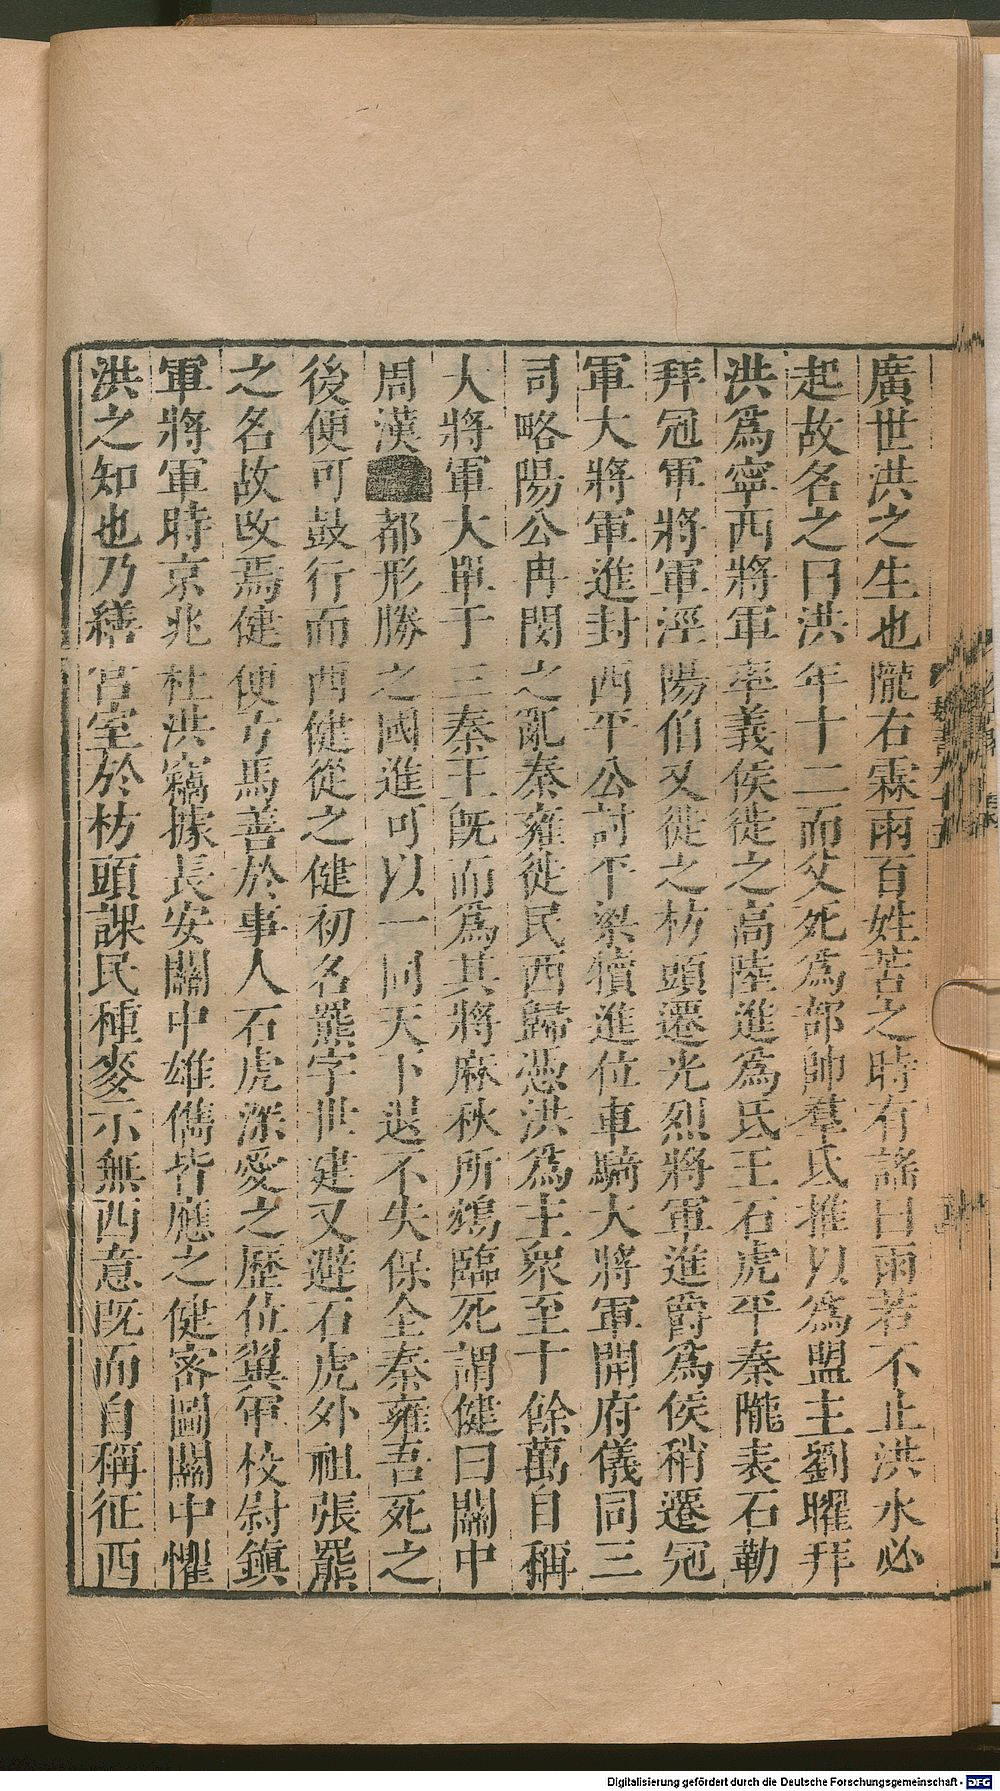 廣世洪之生也隴右霖雨百姓苦之時有謠曰雨若不止洪水必
起故名之曰洪年十二而父死爲部帥羣氐推以爲盟主劉曜拜
洪爲寧西將軍率義侯徙之高陸進爲氐王石虎平秦隴表石勒
拜冠軍將軍涇陽伯又徙之枋頭遷光烈將軍進爵爲侯稍遷冠
軍大將軍進封西平公討平梁犢進位車騎大將軍開府儀同三
司略陽公冉閔之亂秦雍徙民西歸憑洪爲主衆至十餘萬自稱
大將軍大單于三秦王旣而爲其將麻秋所鴆臨死謂健曰關中
周漢都形勝之國進可以一同天下退不失保全秦雍吾死之
後便可鼓行而西健從之健初名羆字世建又避石虎外祖張羆
之名故改焉健便弓馬善於事人石虎深愛之歷位翼軍校尉鎮
軍將軍時京兆杜洪竊據長安關中雄儁皆應之健密圖關中懼
洪之知也乃繕宮室於枋頭課民種麥示無西意旣而自稱征西
Digitalisierung gefördert durch die Deutsche Forschungsgemeinschaft - DFG